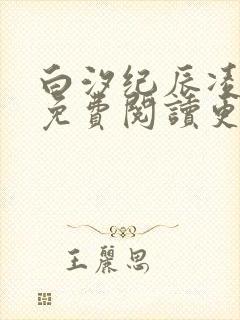 白汐纪辰凌
免費閱讀更
王麗思